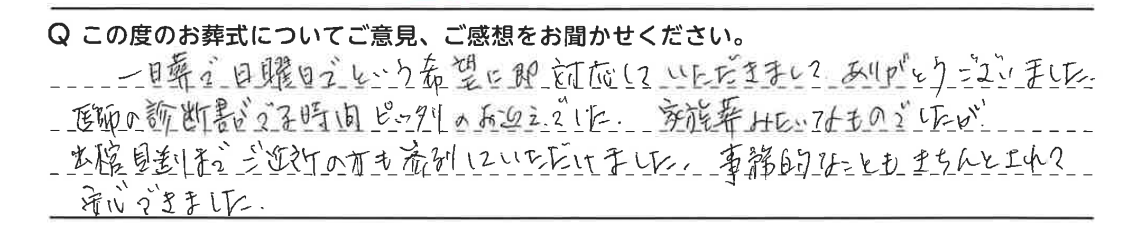 Q この度のお葬式についてご意見、ご感想をお聞かせください。
一日葬で日曜日でという希望に即対応していただきまして、ありがとうございました。
医師の診断書ができる時間ピッタリのお迎えでした。家族葬みたいなものでしたが
出棺見送りまでご近所の方も参列していただけました。事務的なこともきちんとされて
安心できました。